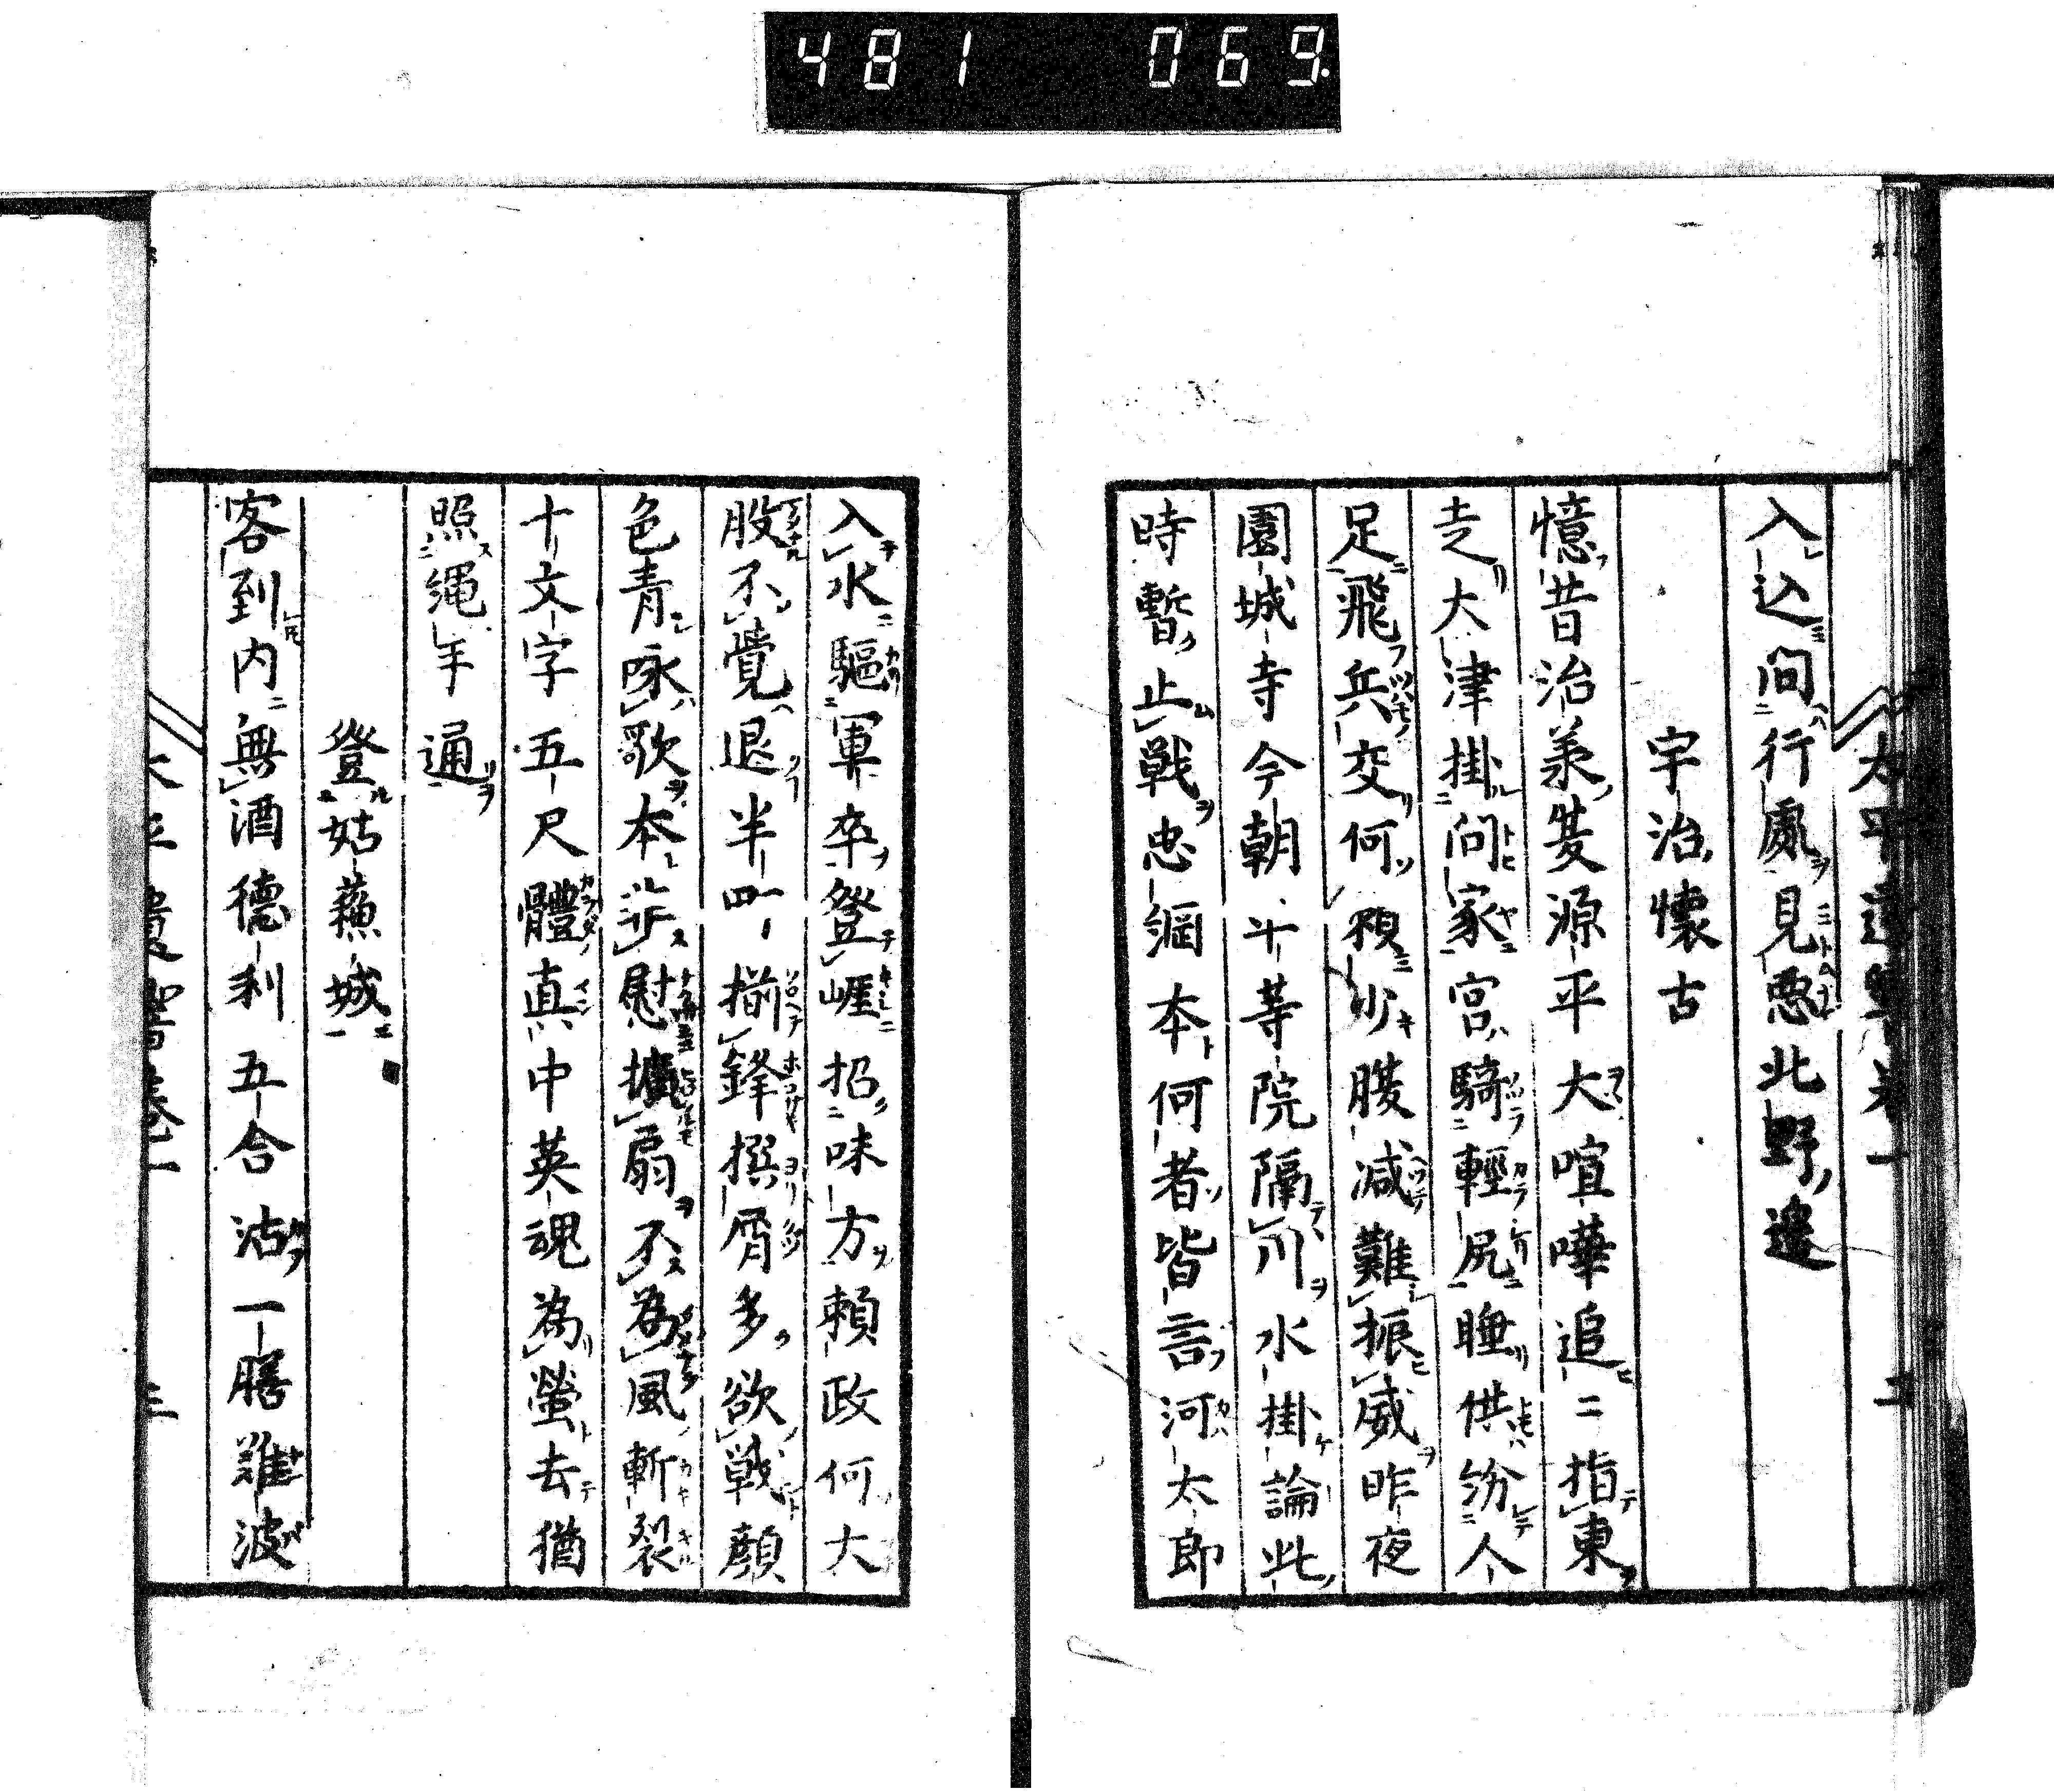 481 069
入込問行處見悪北野邊
宇治懷古
憶昔治承發源平大喧嘩追二指東
走大津掛問家宮騎輕尻睡供紛人
足飛兵交何頼少勝減難振威昨夜
園城寺今朝斗等院隔川水掛論此
時暫止戦忠綱本何者皆言河太郎
入水驅軍卒登崕招味方頼政何大
股不覺退半四揃鋒撰屑多欲戦顔
色青咏歌本歩慰擴扇不為風斬裂
十文字五尺體真中英魂為螢去猶
照縄手通
登姑蘓城
客到内無酒德利五合沽一膳難波